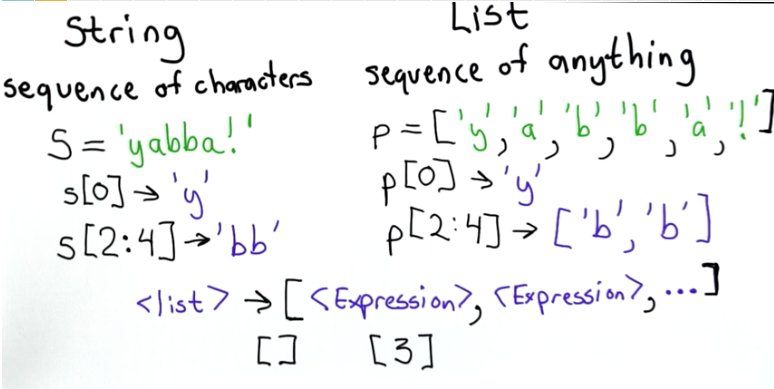 String
sequence of characters
S = 'yabba!'
s[0] → 'y'
s[2:4] → 'bb'
List
sequence of anything
p = ['y', 'a', 'b', 'b', 'a', '!']
p[0] → 'y'
p[2:4] → ['b', 'b']
<list> → [ <Expression>, <Expression>, ... ]
[] [3]